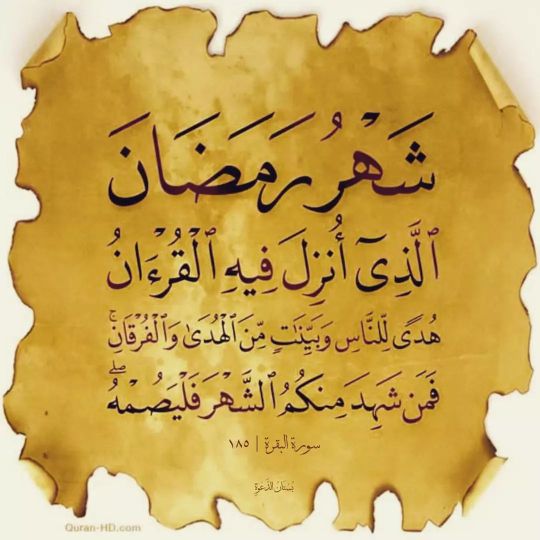 شَهْرُ رَمَضَانَ
ٱلَّذِىٓ أُنزِلَ فِيهِ ٱلْقُرْءَانُ
هُدًى لِّلنَّاسِ وَبَيِّنَٰتٍ مِّنَ ٱلْهُدَىٰ وَٱلْفُرْقَانِ ۚ
فَمَن شَهِدَ مِنكُمُ ٱلشَّهْرَ فَلْيَصُمْهُ ۖ
سورة البقرة | ١٨٥
بُستَانُ الدَّعوَةِ
Quran-HD.com